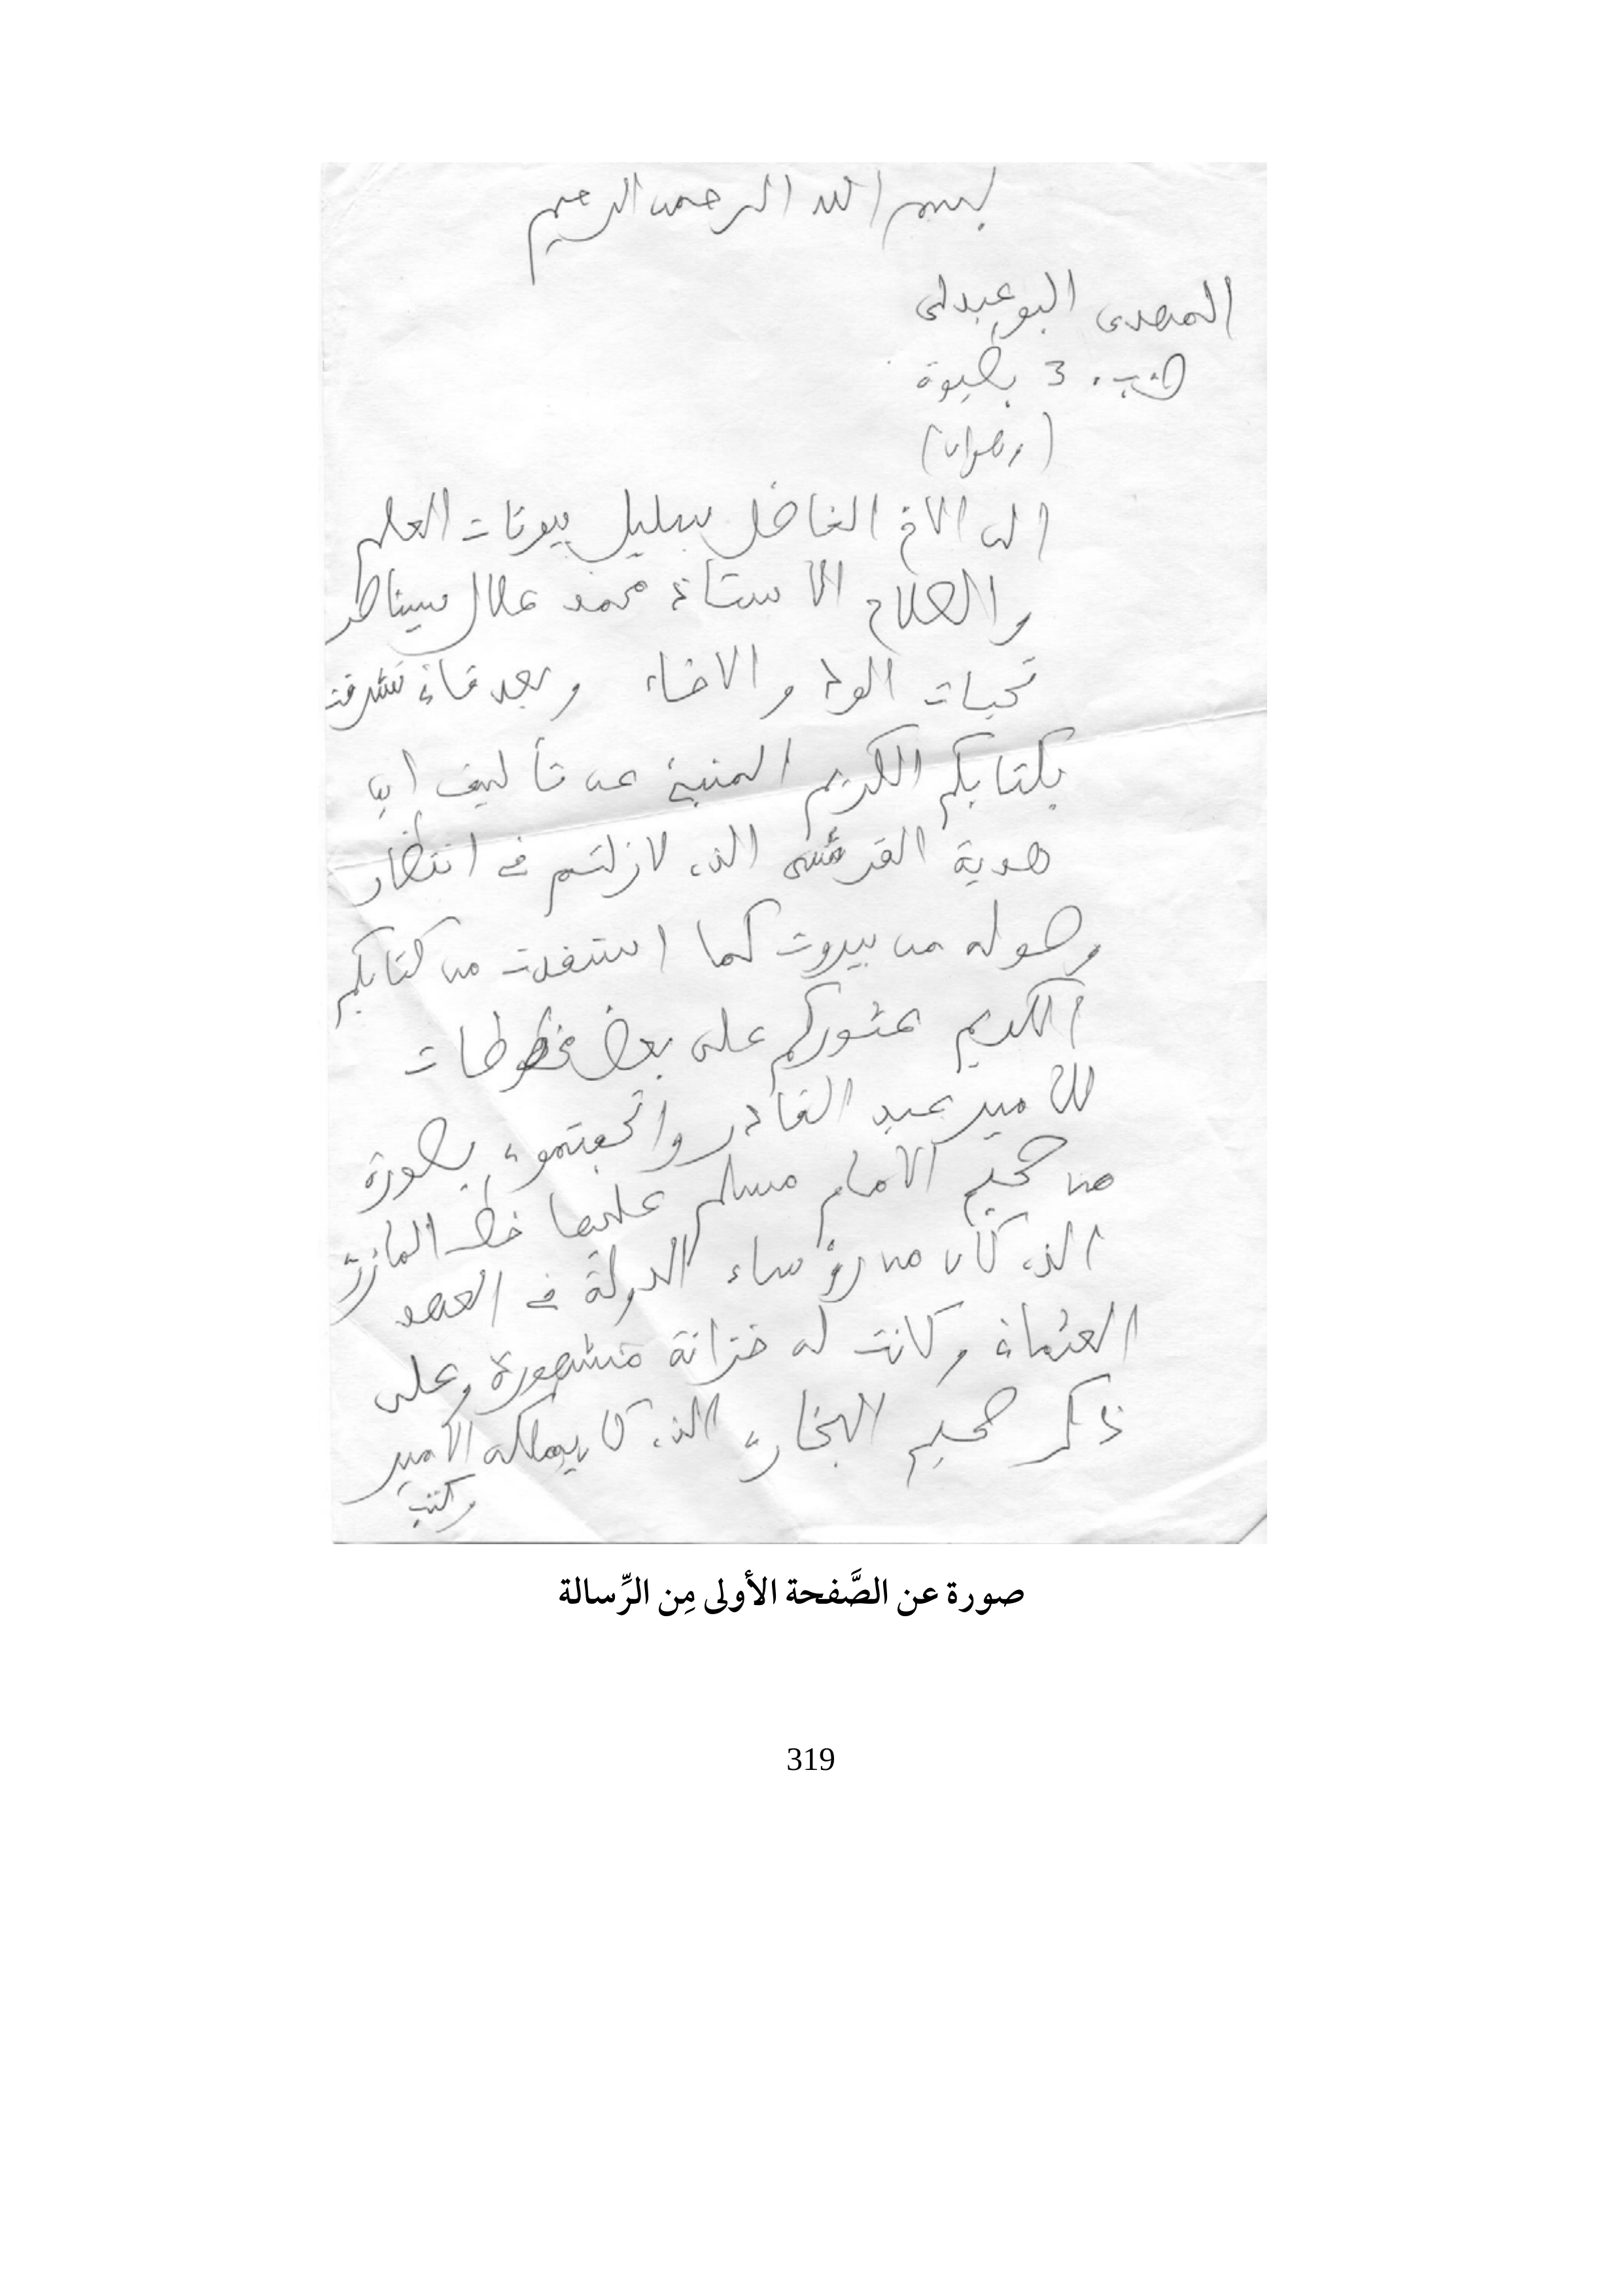 بسم الله الرحمن الرحيم
المهدى البوعبدلى
ص.ب. 3 بطيوة
(وهران)
الى الاخ الفاضل سليل بيوتات العلم
والصلاح الاستاذ محمد علال سيناصر
تحيات الود والاخاء وبعد فاني تشرفت
بكتابكم الكريم المنبئ عن تأليف ابن
هدية القرشى الذي لازلتم في انتظار
وصوله من بيروت كما استفدت من كتابكم
الكريم عثوركم على بعض مخطوطات
للامير عبد القادر واتحفتموني بصورة
من صحيح الامام مسلم عليها خط المازري
الذي كان من رؤساء الدولة في العهد
العثماني وكانت له خزانة مشهورة وعلى
ذكر صحيح البخاري الذي كان يملكه الامير
وكتب
صورة عن الصَّفحة الأولى مِن الرِّسالة
319